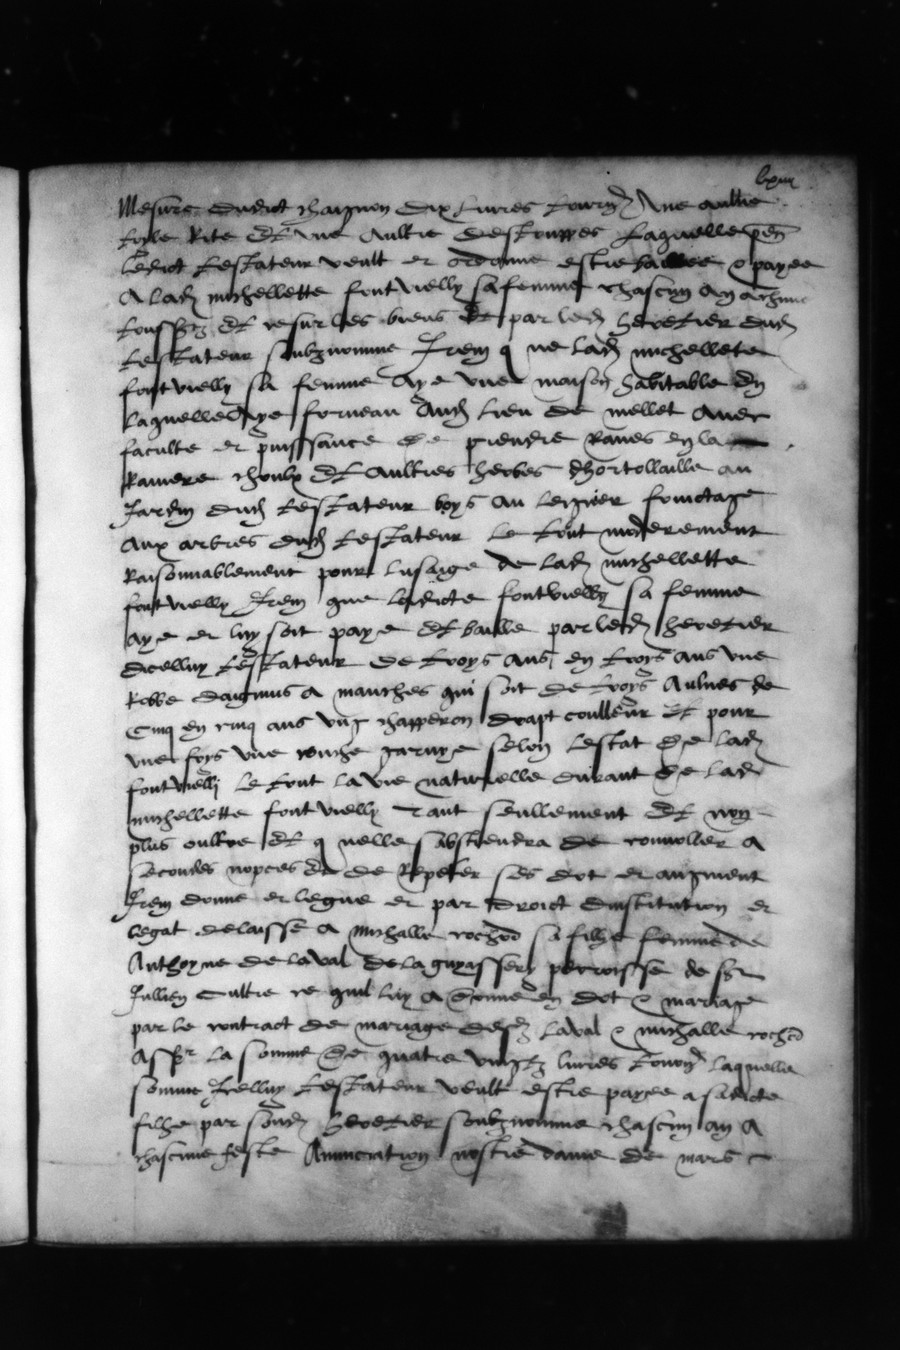 lxiiii
Mesure dudict chaignon dix livres tourn. Une aultre
toyle Rite et une aultre destouppes laquelle pen
ledict testateur veult et ordonne estre baillee & payee
A lad. michellette fontvielly sa femme chascun an a chune
toussz et ce sur les biens et par led. heretier dud.
testateur soubznomme Item q ne lad. michellete
fontvielly sa femme Aye une maison habitable En
laquelle Aye forneau Aud. lieu de mellet Avec
faculte et puissance de prendre Raves en la
Raviere choulx et aultres herbes dhortollaille au
Jardin dud. testateur boys au leignier fruictage
aux arbres dud. testateur le tout moderement
Raisonnablement pour lusaige de lad. michellette
fontvielly Item que ladicte fontvielly sa femme
aye et luy soit paye et baille par led. heretier
dicelluy testateur de troys ans en troys ans une
Robbe daignus a manches qui soit de troys Aulnes de
Cinq en cinq ans ung chapperon drapt coulleur et pour
une foys une couche garnye selon lestat de lad.
fontvielly le tout la vie naturelle durant de lad.
michellette fontvielly Tant seullement et non
plus oultre et q nelle sabstiendra de convoller A
secondes nopces et de Repeter ses dot et augment
Item donne et legue et par droict dinstitution et
legat delaisse A michalle rochod sa filhe femme de
Anthoyne de laval de la guyassery perroisse de st
Jullien Cultre ce quil luy A donne en dot & mariage
par le contract de mariage desd. laval & michalle rochod
Asspr la somme de quatre vingtz livres tourn. laquelle
somme Icelluy testateur veult estre payee a sadicte
filhe par sond. heretier soubznomme chascun an A
chascune feste Annunciation nostre dame de mars